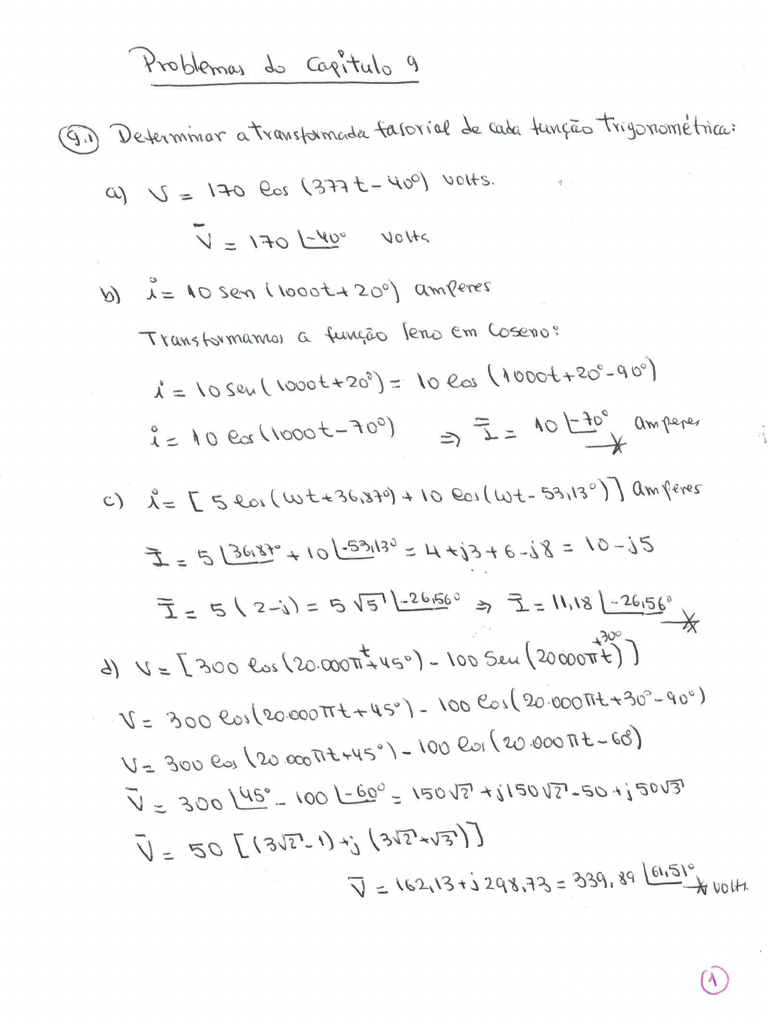 Problemas do Capitulo 9
9.1 Determinar a transformada fasorial de cada função trigonométrica:
a) V = 170 cos (377t - 40°) volts.
V̄ = 170 ∠-40° volts
b) i = 10 sen (1000t + 20°) amperes
Transformamos a função seno em coseno:
i = 10 sen (1000t + 20°) = 10 cos (1000t + 20° - 90°)
i = 10 cos (1000t - 70°) ⇒ Ī = 10 ∠-70° amperes
c) i = [5 cos (ωt + 36,87°) + 10 cos (ωt - 53,13°)] amperes
Ī = 5 ∠36,87° + 10 ∠-53,13° = 4 + j3 + 6 - j8 = 10 - j5
Ī = 5 (2 - j) = 5 √5 ∠-26,56° ⇒ Ī = 11,18 ∠-26,56°
d) V = [300 cos (20.000πt + 45°) - 100 sen (20000πt +30°)]
V = 300 cos (20.000πt + 45°) - 100 cos (20.000πt + 30° - 90°)
V = 300 cos (20.000πt + 45°) - 100 cos (20.000πt - 60°)
V̄ = 300 ∠45° - 100 ∠-60° = 150√2 + j150√2 - 50 + j50√3
V̄ = 50 [(3√2 - 1) + j (3√2 + √3)]
V̄ = 162,13 + j298,73 = 339,89 ∠61,51° volts
1